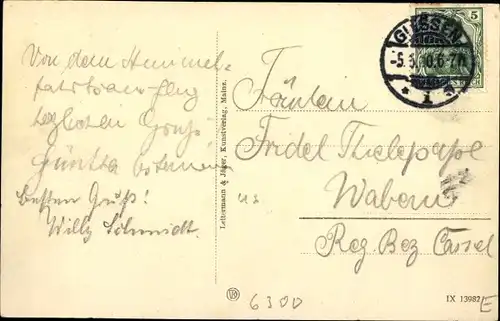 Von dem Himmel-
fahrtsausflug
herzlichen Gruß
Günther
besten Gruß!
Willy Schmidt.
Lettermann & Jäger, Kunstverlag, Mainz.
GIESSEN
-5.5.10.6-7N
* 1
5
Fräulein
Fridel Thielepape
Wabern
Reg. Bez. Cassel
6300
IX 13982
E